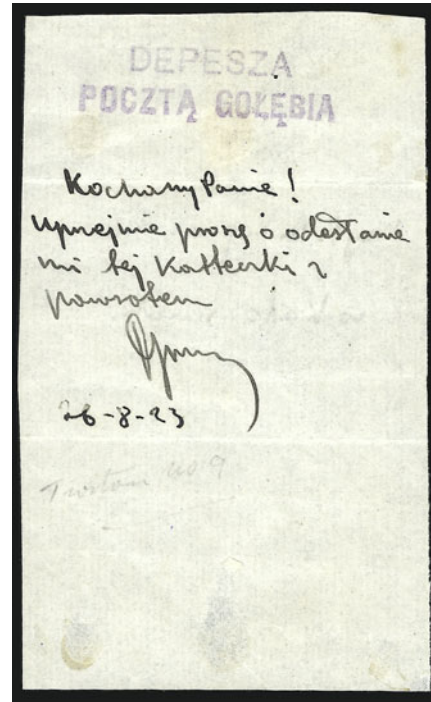 DEPESZA
POCZTĄ GOŁĘBIA
Kochany Panie!
Uprzejmie proszę o odesłanie
mi tej karteczki z
powrotem
26-8-23